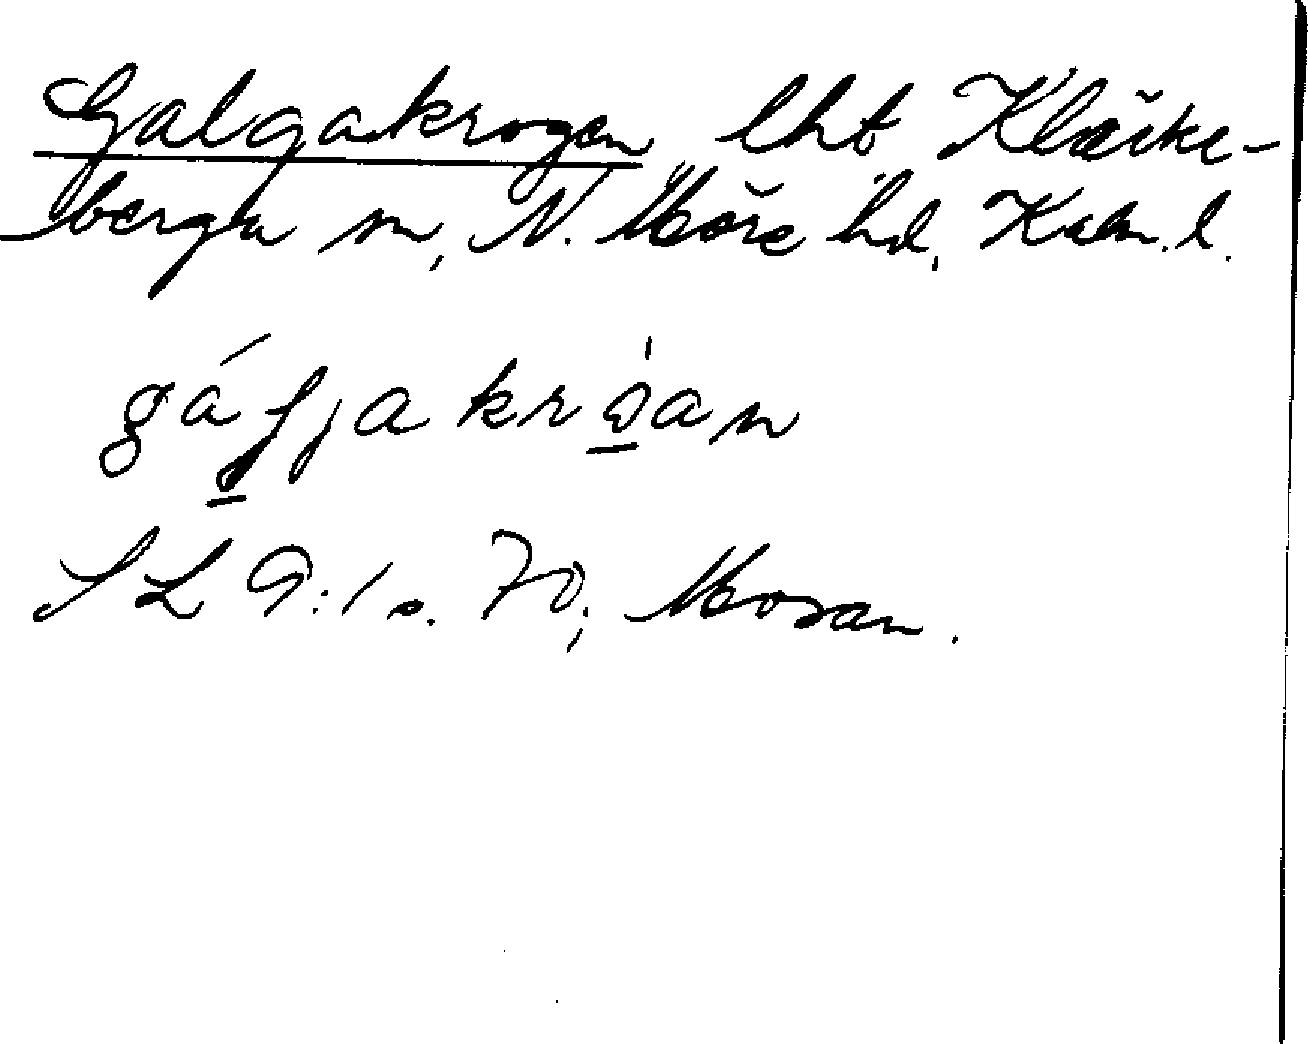 Galgakrogen lht Kläcke-
berga sn, N. Möre hd, Kalm. l.
gáljakròan
SL 9:1 s. 70; Moran.